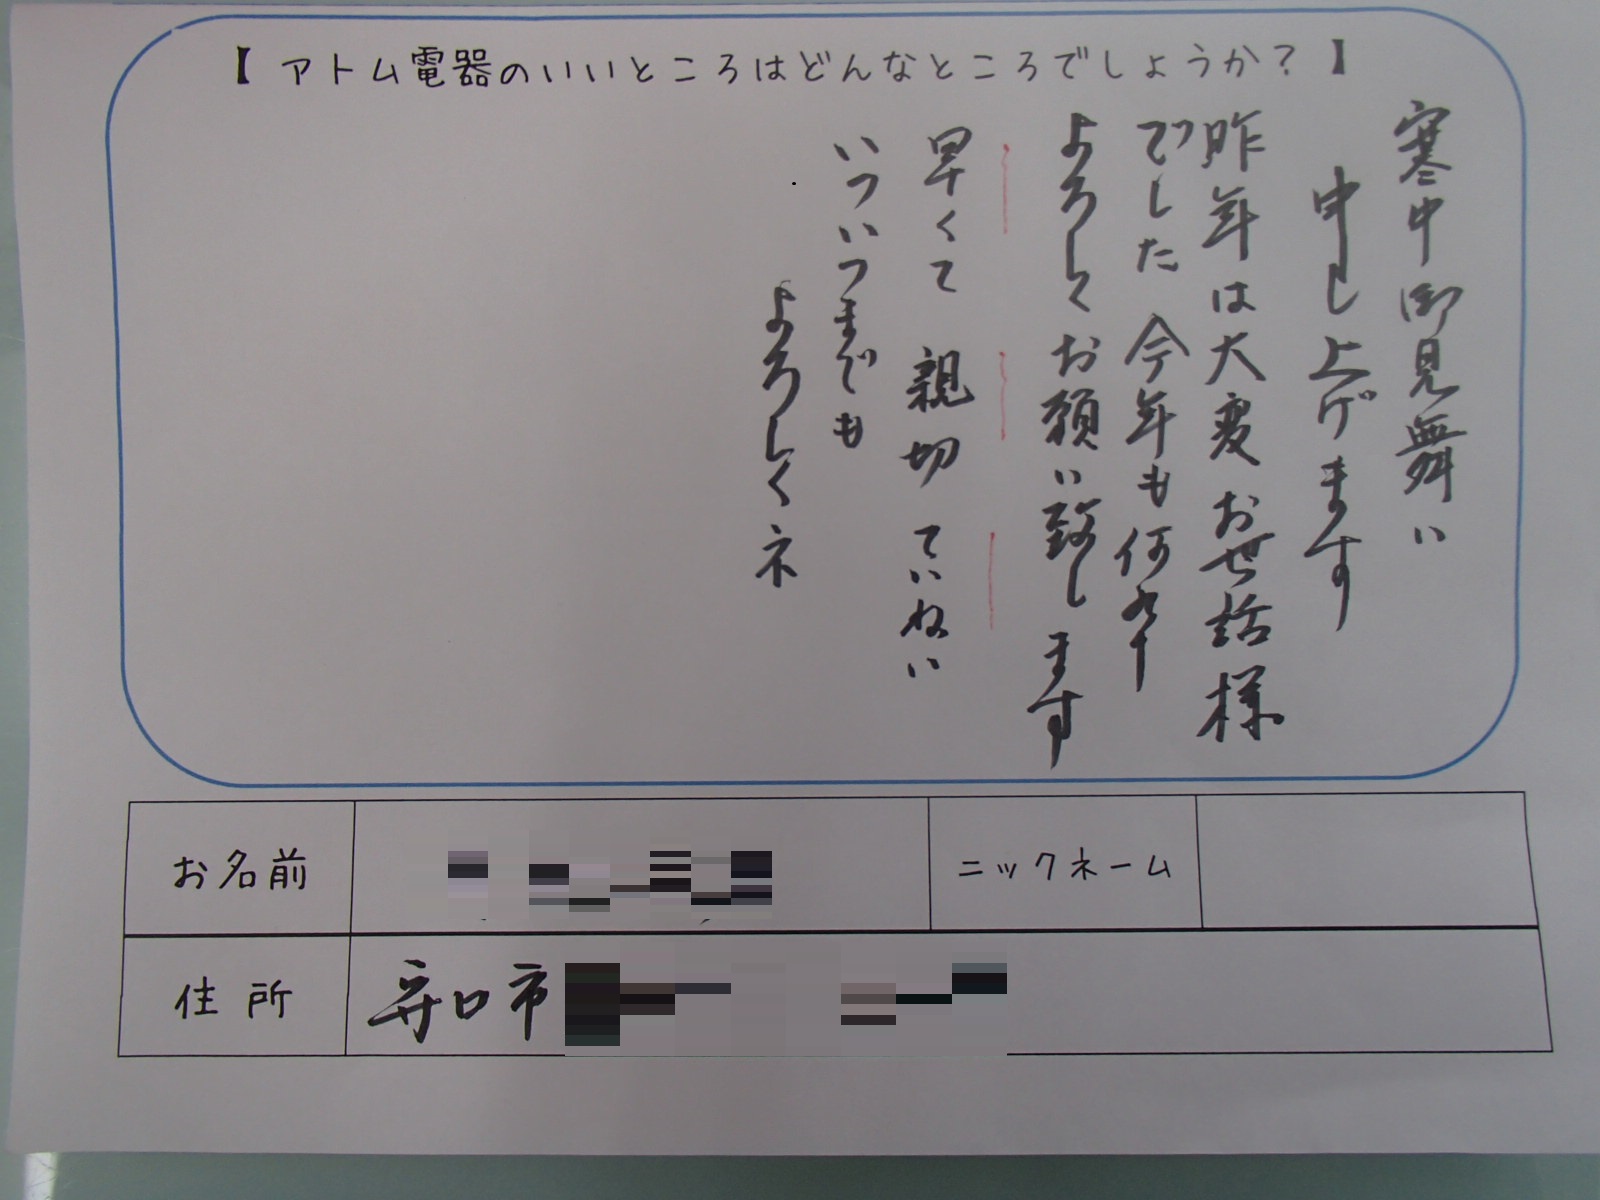 【 アトム電器のいいところはどんなところでしょうか？ 】
寒中御見舞い
申し上げます
昨年は大変お世話様
でした 今年も何卒
よろしくお願い致します
早くて 親切 ていねい
いついつまでも
よろしくネ
お名前
ニックネーム
住所 守口市